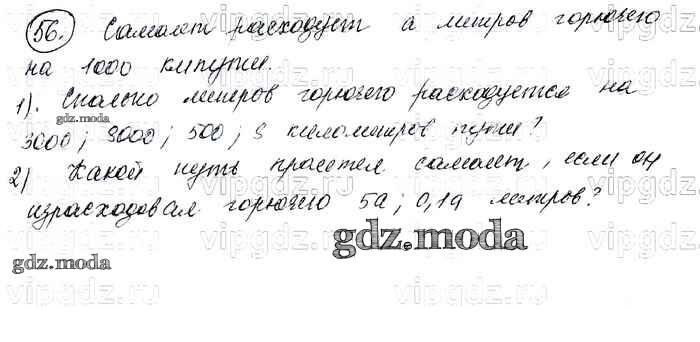 56. Самолет расходует а литров горючего
на 1000 км пути.
1). Сколько литров горючего расходуется на
3000; 8000; 500; S километров пути?
2) Какой путь пролетел самолет, если он
израсходовал горючего 5а; 0,1а литров?
gdz.moda
gdz.moda
gdz.moda